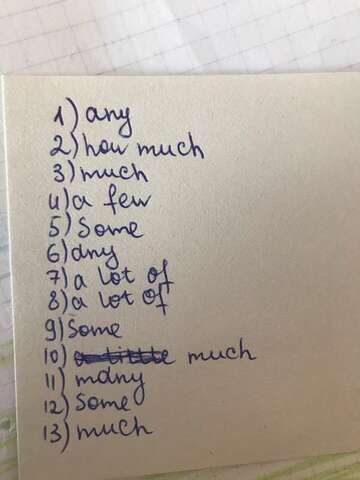 1) any
2) how much
3) much
4) a few
5) Some
6) any
7) a lot of
8) a lot of
9) Some
10) a little much
11) many
12) Some
13) much